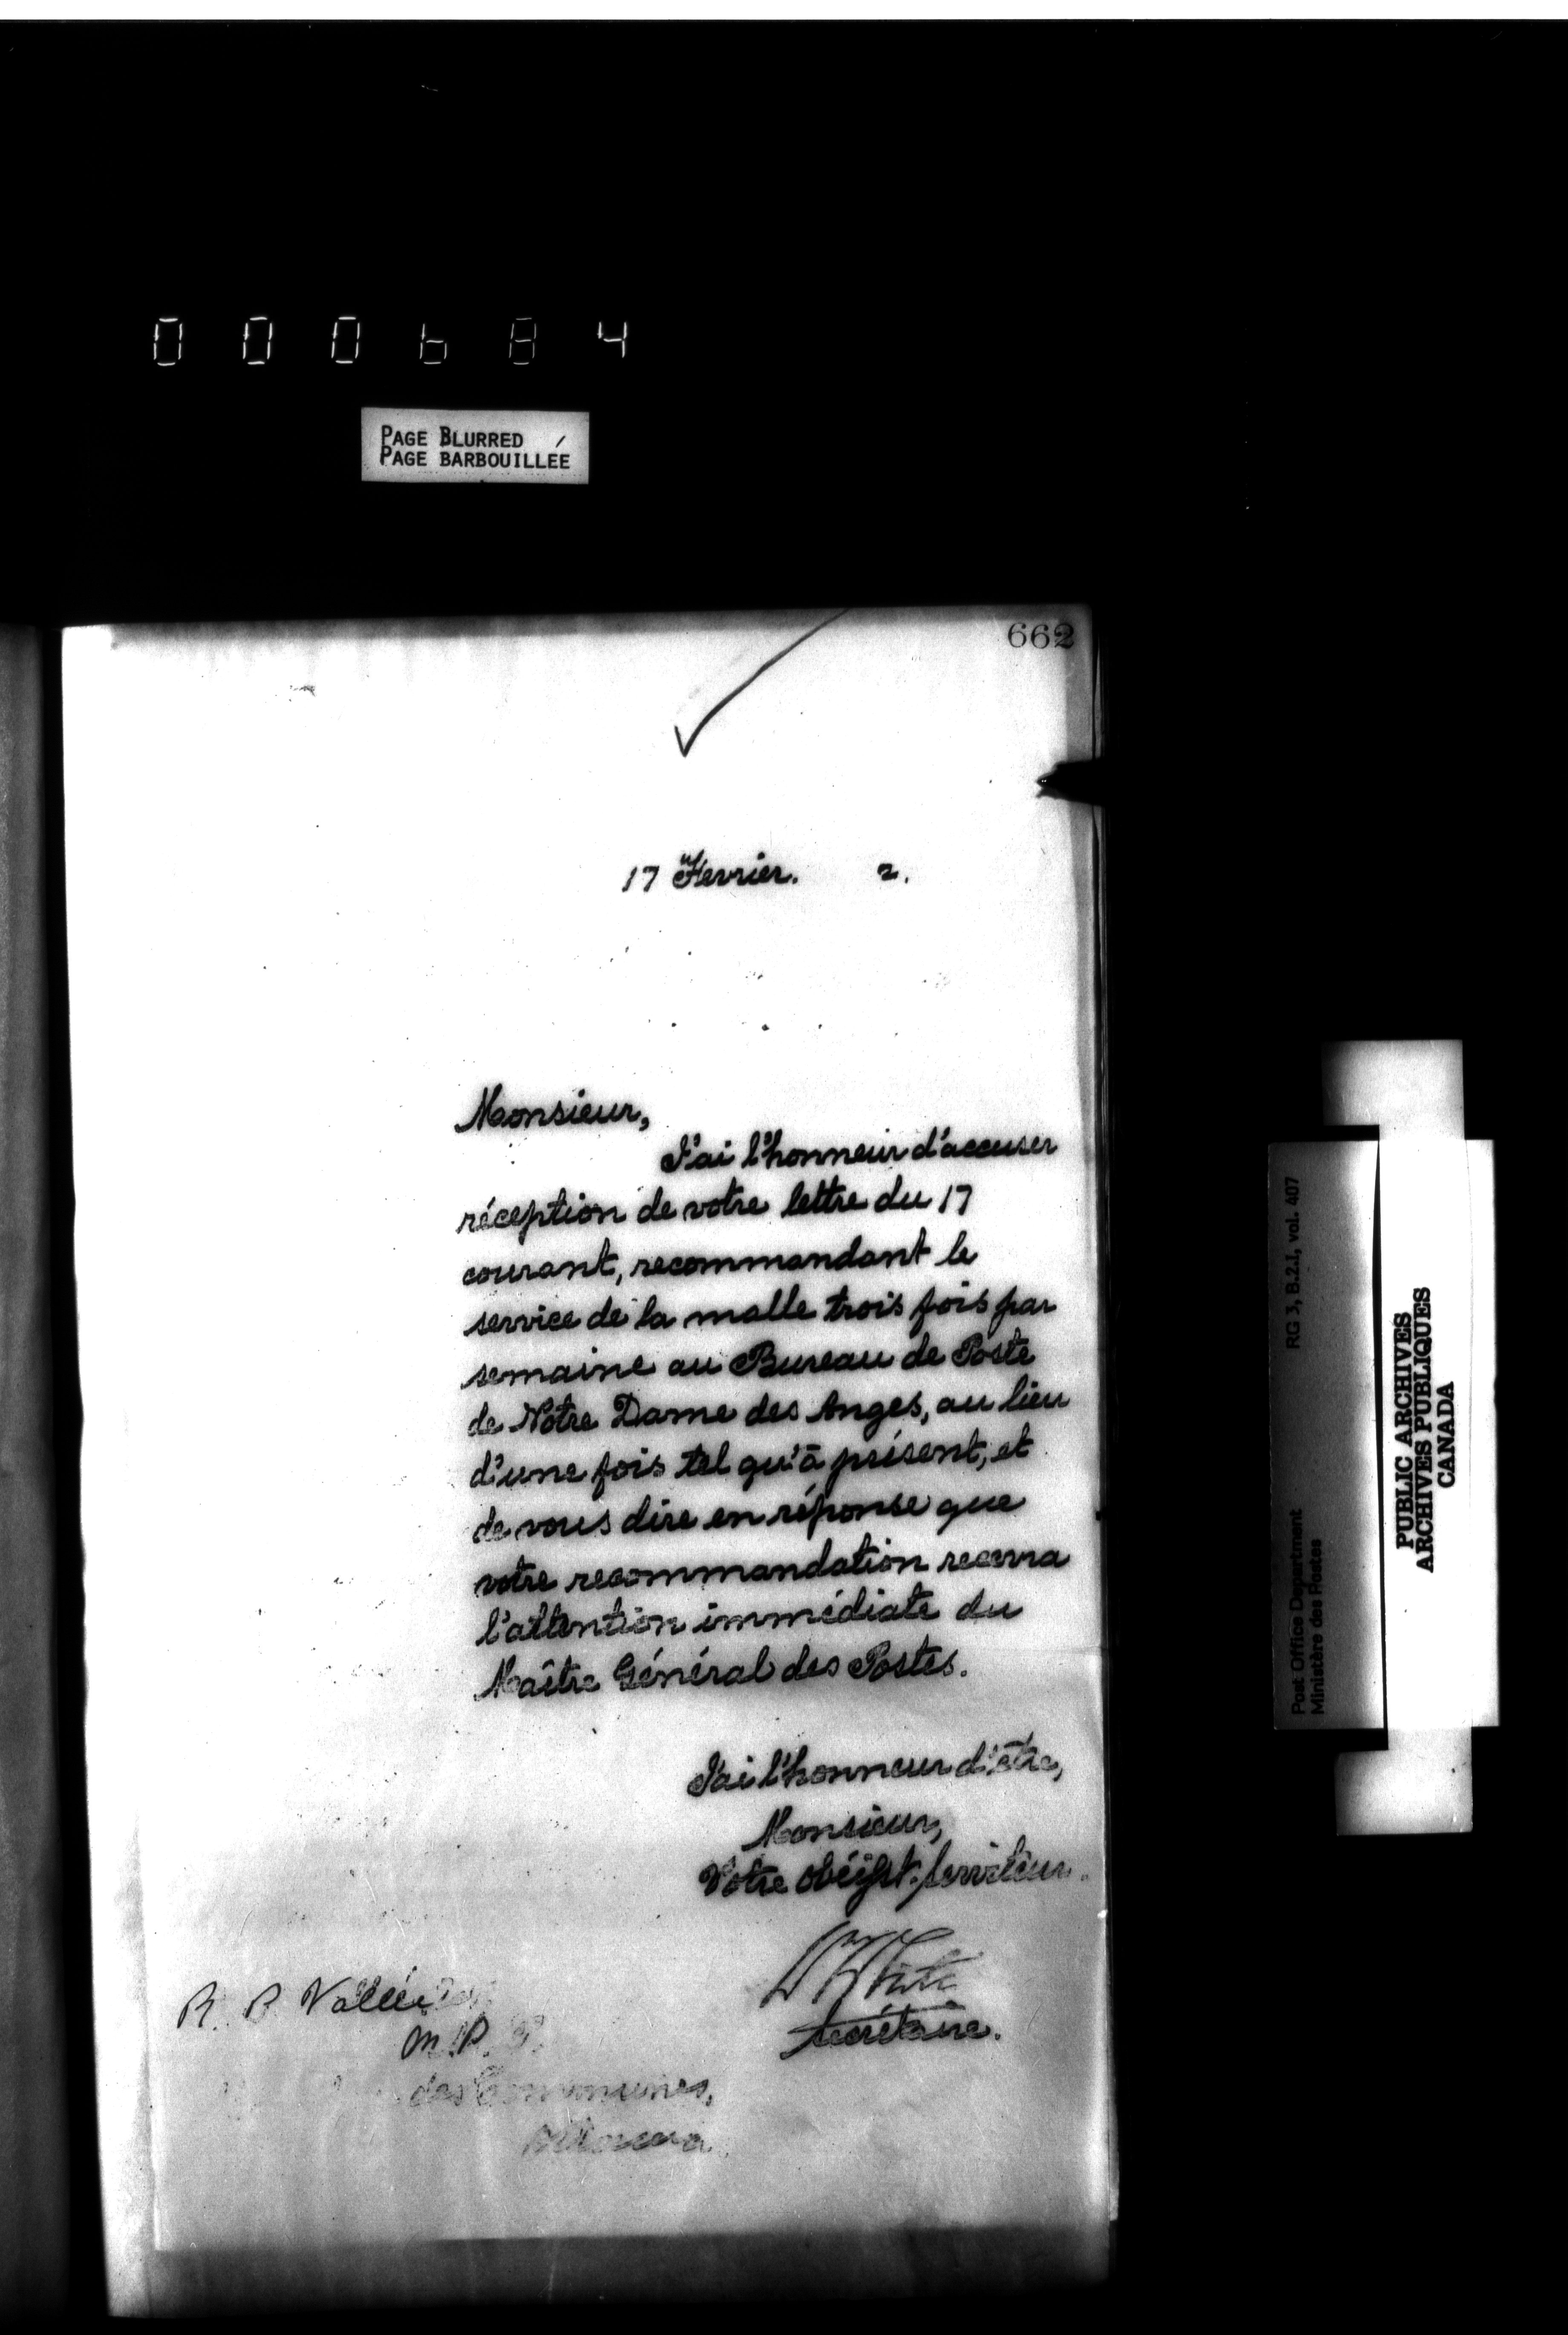 000684
PAGE BLURRED
PAGE BARBOUILLÉE
662
17 Fevrier. 2.
Monsieur,
J'ai l'honneur d'accuser
réception de votre lettre du 17
courant, recommandant le
service de la malle trois fois par
semaine au Bureau de Poste
de Notre Dame des Anges, au lieu
d'une fois tel qu'à présent, et
de vous dire en réponse que
votre recommandation recevra
l'attention immédiate du
Maître Général des Postes.
J'ai l'honneur d'être,
Monsieur,
Votre obéisst. serviteur.
White
Secrétaire.
R. P. Vallée
M.P.
des Communes,
Ottawa
RG 3, B.2.1, vol. 407
Post Office Department
Ministère des Postes
PUBLIC ARCHIVES
ARCHIVES PUBLIQUES
CANADA